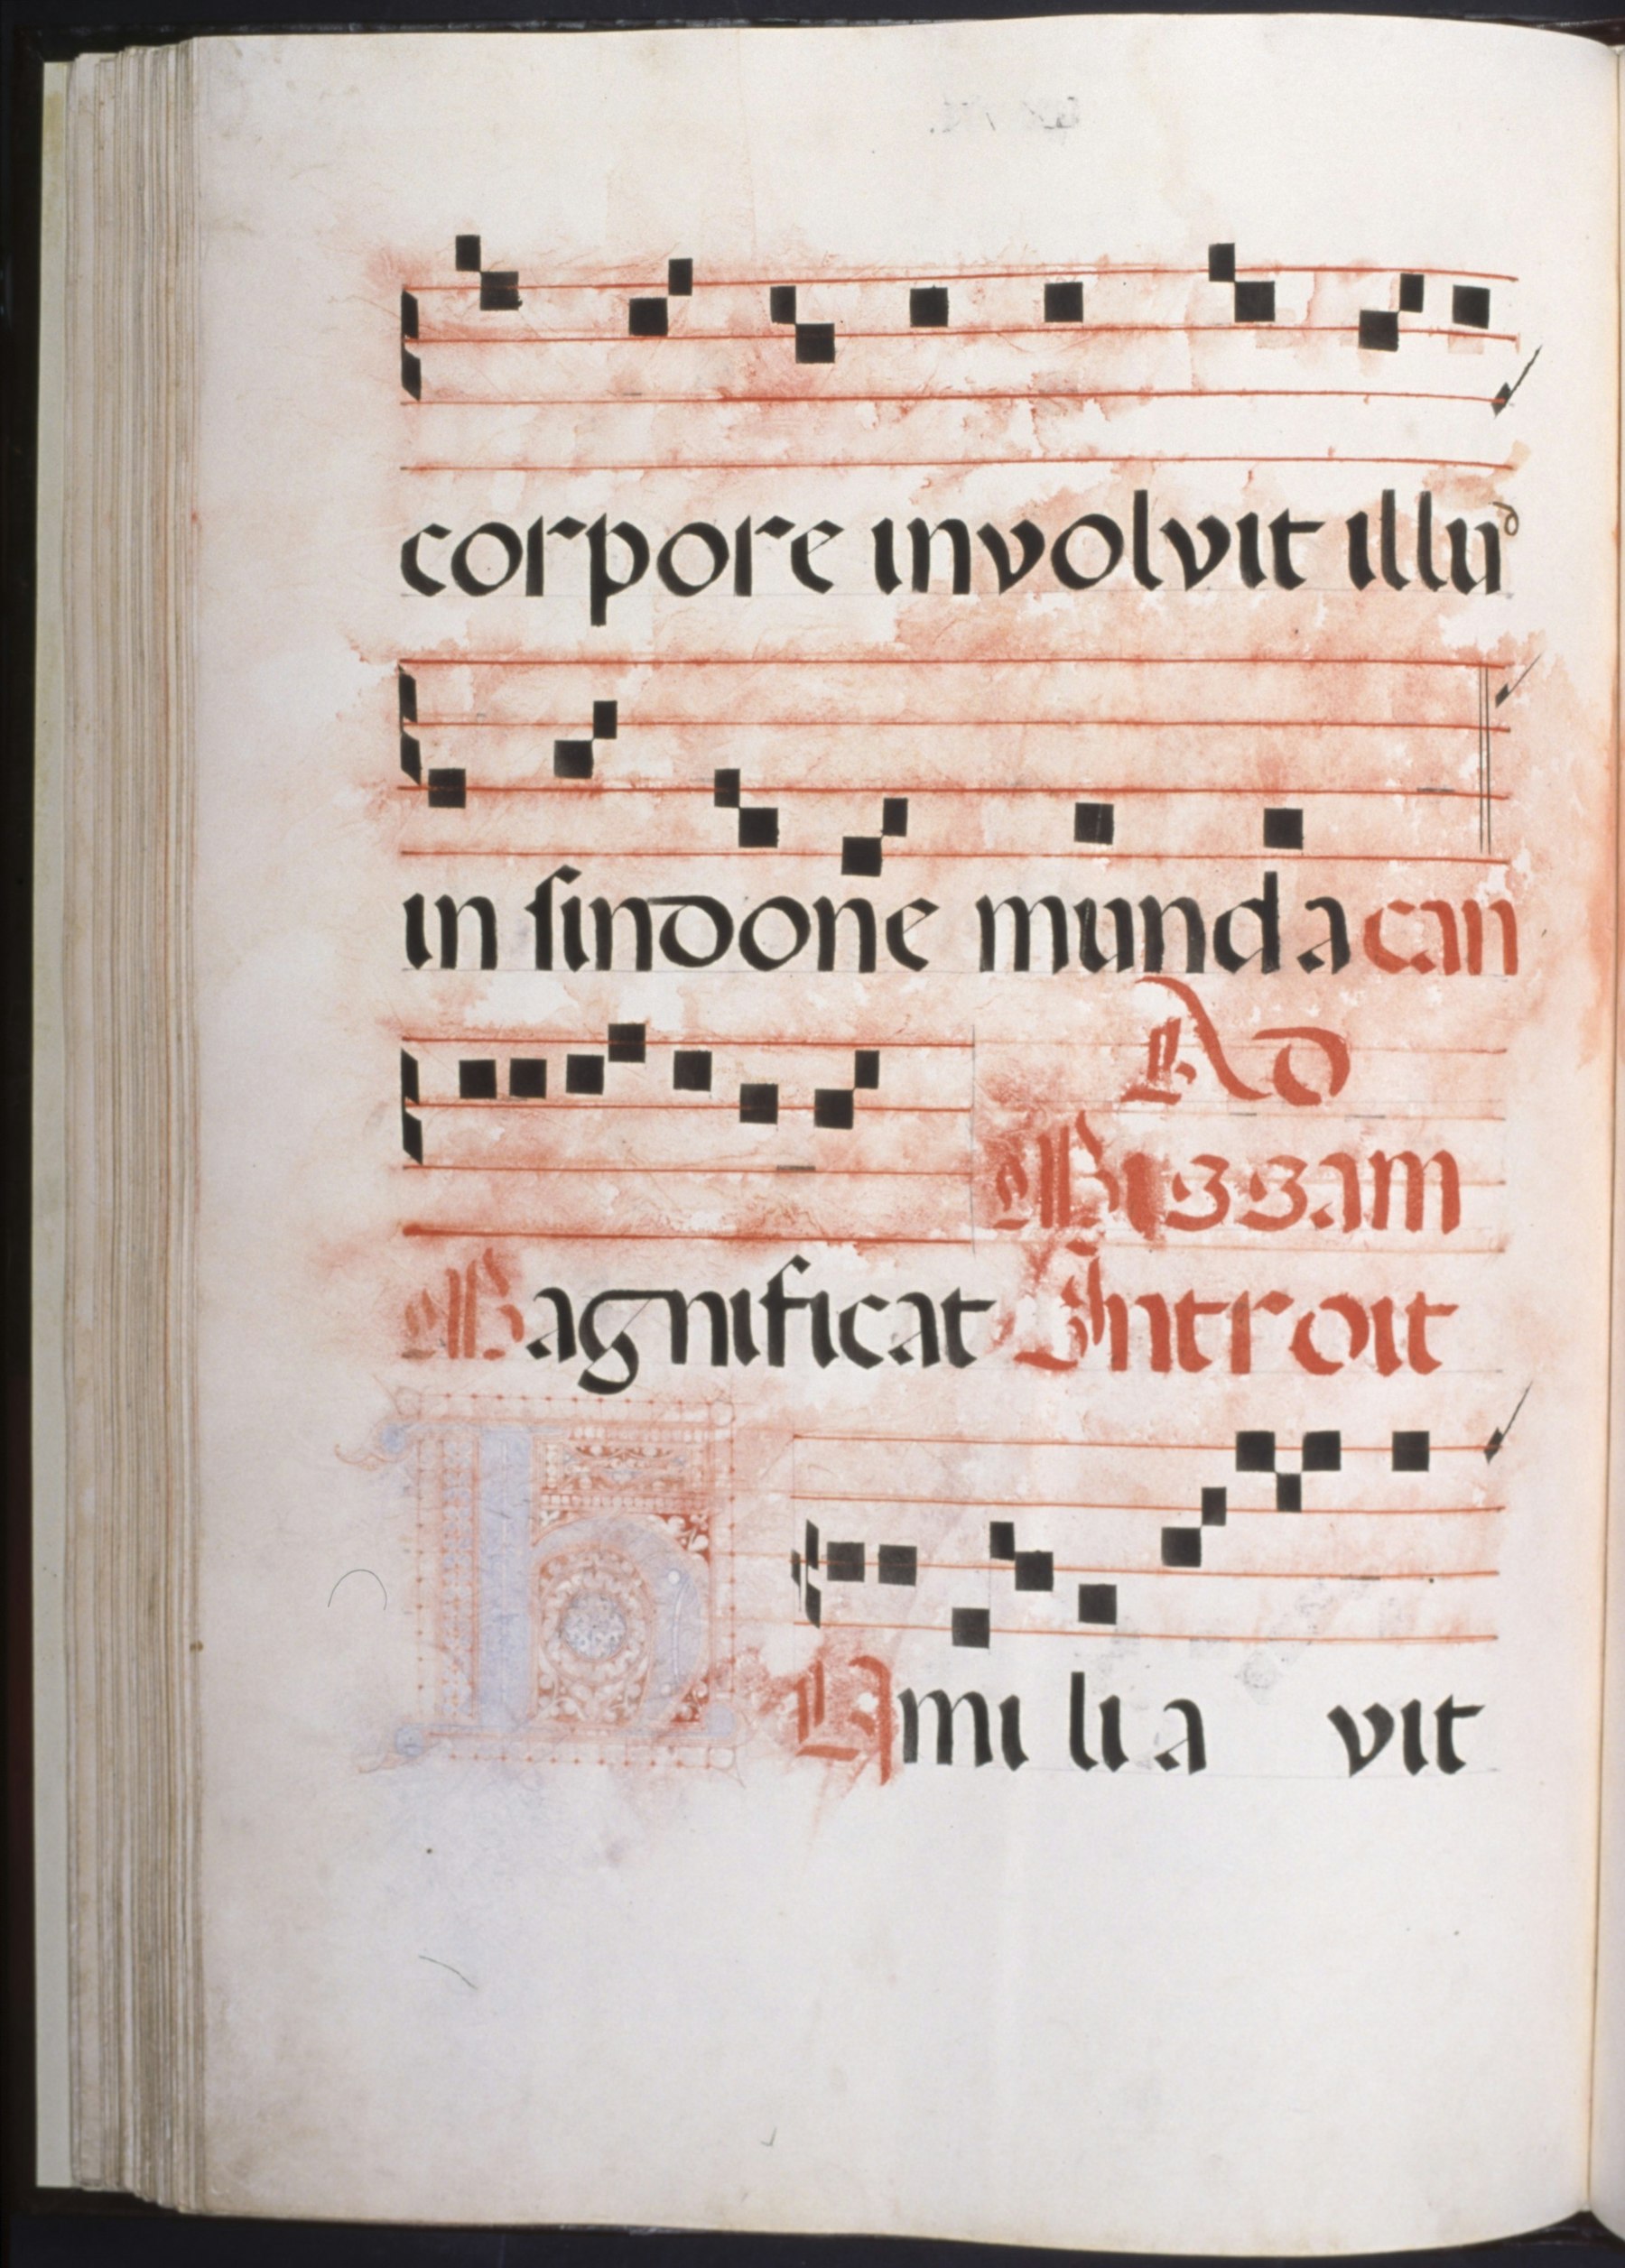 corpore involvit illud
in sindone munda can
Ad
Missam
Magnificat Introit
HUmiliavit